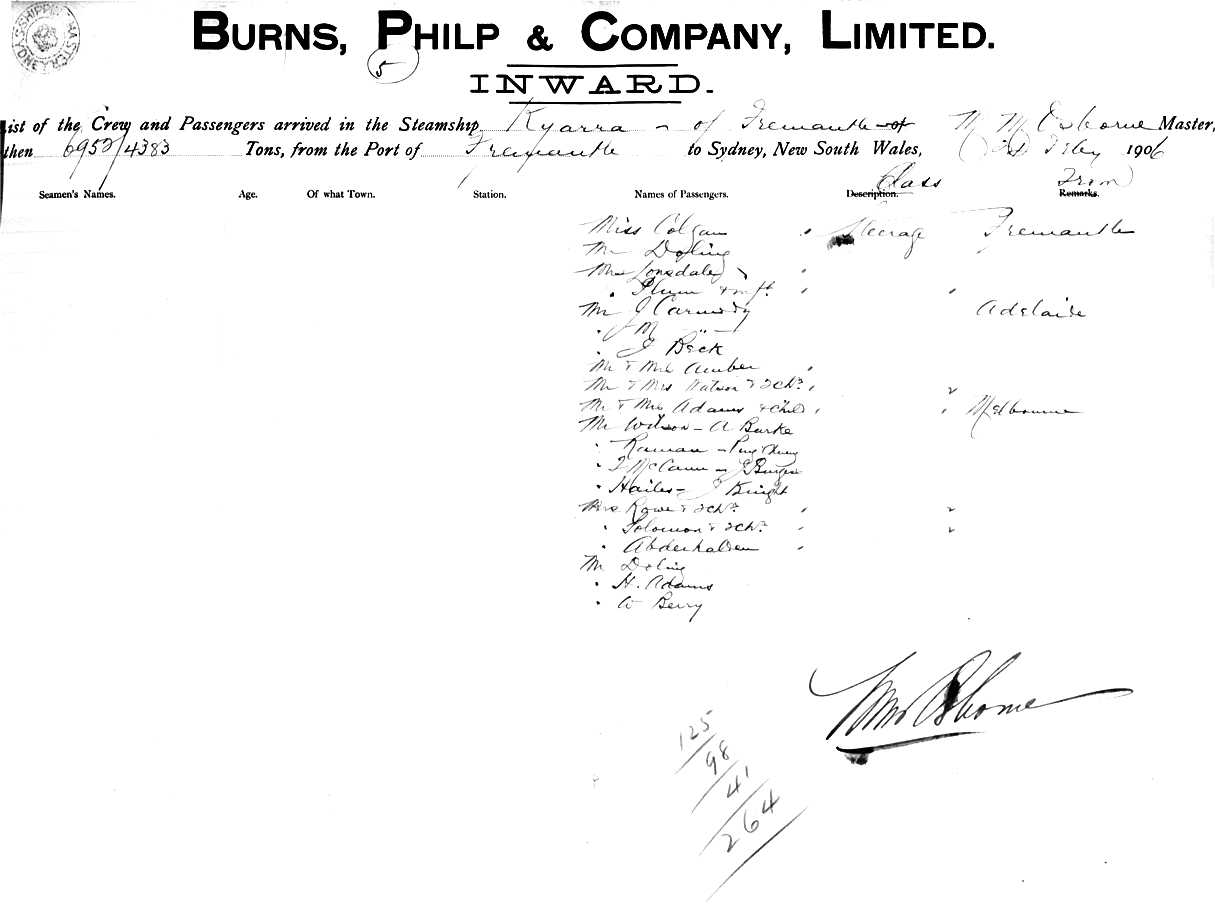 BURNS, PHILP & COMPANY, LIMITED.
5
INWARD.
List of the Crew and Passengers arrived in the Steamship Kyarra of Fremantle of M Osborne Master,
then 6952/4383 Tons, from the Port of Fremantle to Sydney, New South Wales, 1906
Class From
Seamen's Names. Age. Of what Town. Station. Names of Passengers. Description. Remarks.
Miss Colgan " Steerage Fremantle
Mr Doling
Mrs Lonsdale "
" Plum & inft. " "
Mr J Carmody Adelaide
" M "
" J Beck
Mr & Mrs Amber "
Mr & Mrs Watson & 2 Chn. " "
Mr & Mrs Adams & Child " " Melbourne
Mr Wilson - A Burke
" Raman -
" McCann - J
" Hailes - J Knight
Mrs Rowe & 2 Chn. " "
" Solomon & 2 Chn. " "
" Abderhalden "
Mr Doling
" H. Adams
" W Berry
Osborne
125
98
41
264